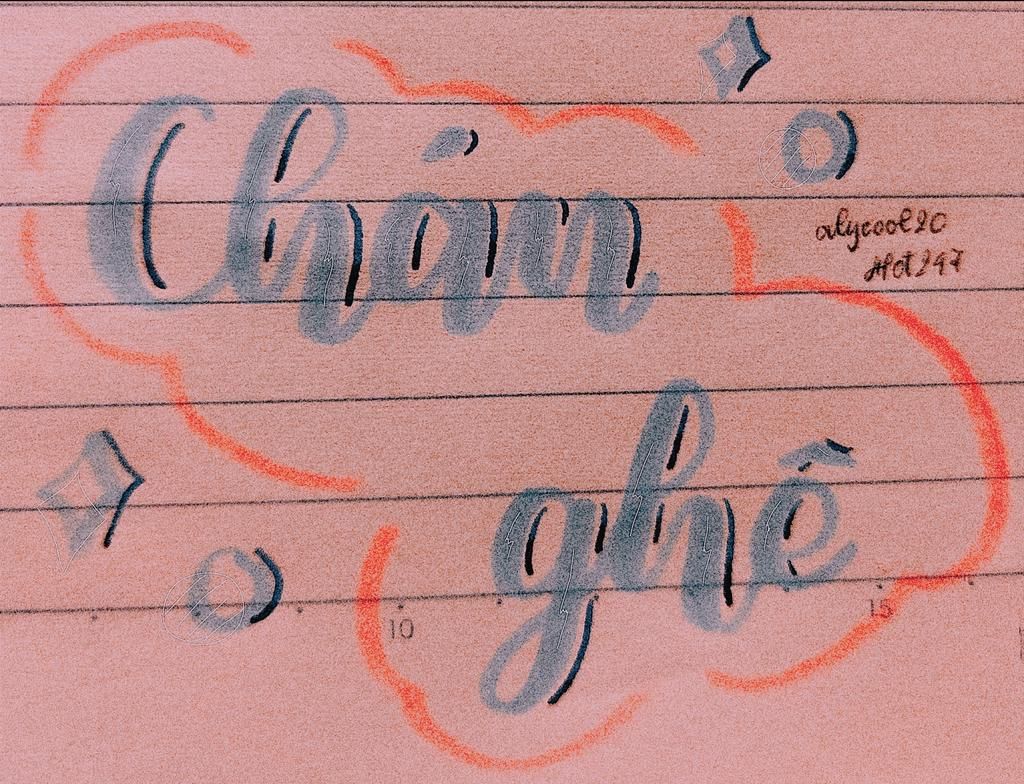 Chán
alycool20
Hot247
ghê
10
15